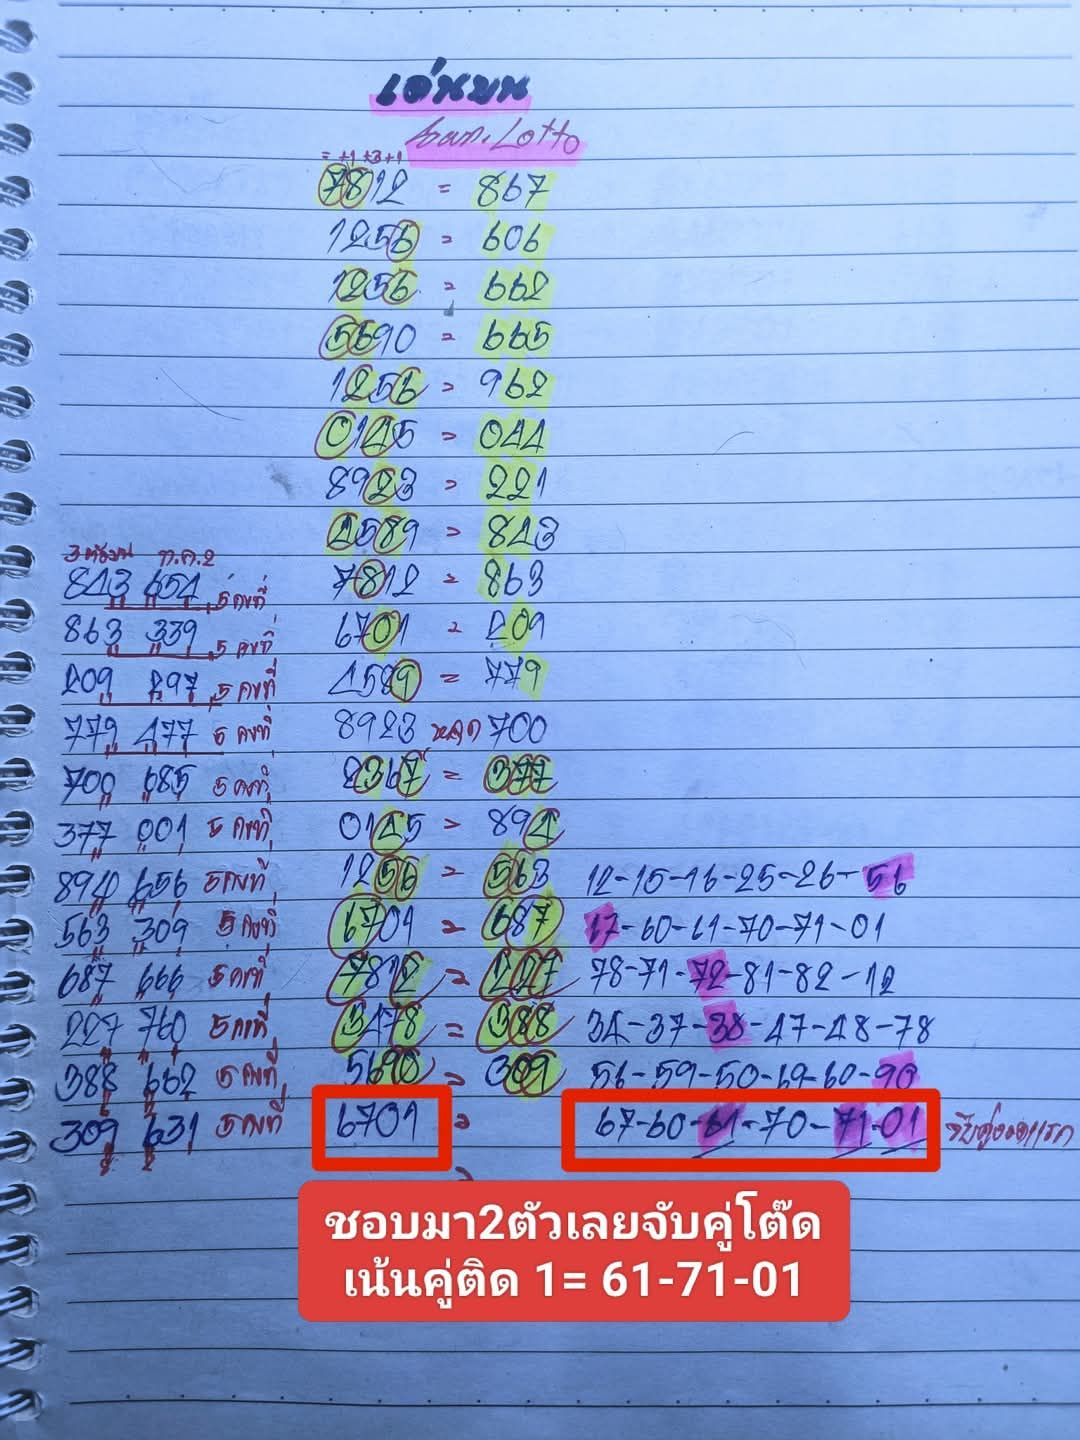 เด่นบน
Lotto
= +1 +3 +1
7812 = 867
1256 = 606
1256 = 662
5690 = 665
1256 = 962
0145 = 044
8923 = 221
4589 = 843
3 ตัวบน ท.ค.2
843 654 5 คงที่ 7812 = 863
863 339 5 คงที่ 6701 = 209
209 297 5 คงที่ 4589 = 779
779 477 5 คงที่ 8923 หลุด 700
700 685 5 คงที่ 2367 = 377
377 001 5 คงที่ 0145 = 894
894 656 5 คงที่ 1256 = 563 12-15-16-25-26-56
563 309 5 คงที่ 6701 = 687 67-60-61-70-71-01
687 666 5 คงที่ 7812 = 227 78-71-72-81-82-12
227 760 5 คงที่ 3478 = 388 34-37-38-47-48-78
388 662 5 คงที่ 5690 = 309 56-59-50-69-60-90
309 631 5 คงที่ 6701 = 67-60-61-70-71-01
ชอบมา2ตัวเลยจับคู่โต๊ด
เน้นคู่ติด 1= 61-71-01